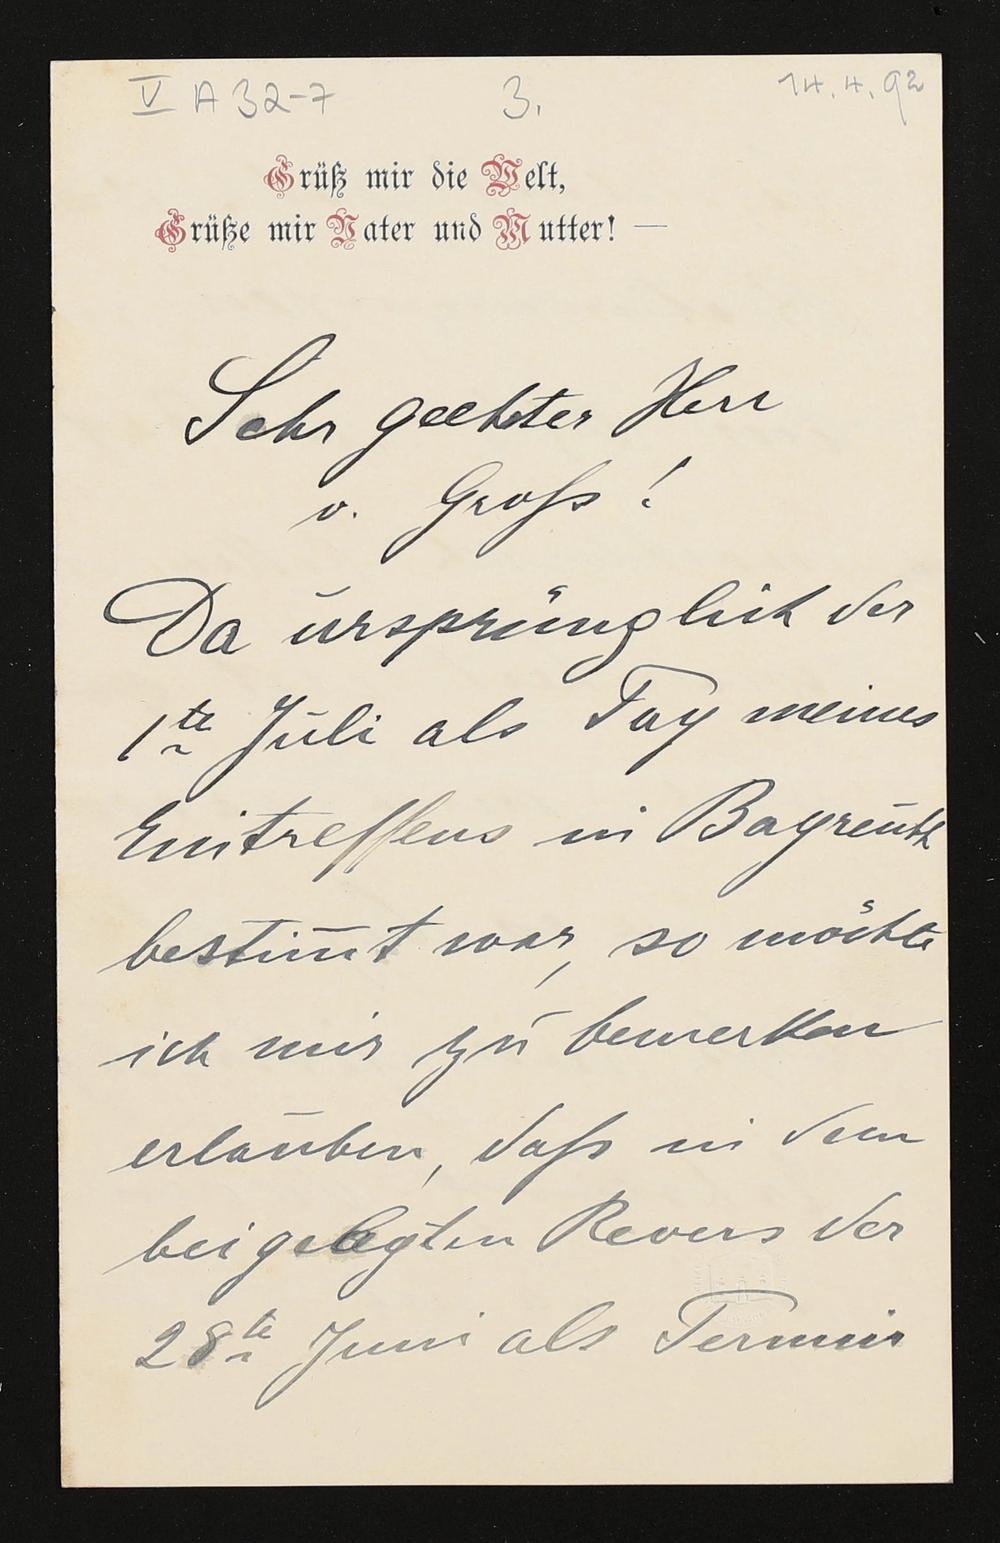 V A 32-7 3. 14.4.92
Grüß mir die Welt,
Grüße mir Vater und Mutter! —
Sehr geehrter Herr
v. Groß!
Da ursprünglich der
1te Juli als Tag meines
Eintreffens in Bayreuth
bestim̅t war, so möchte
ich mir zu bemerken
erlauben, daß in dem
beigelegten Revers der
28te Juni als Termin